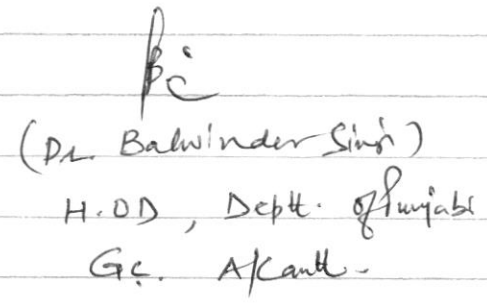 (Dr. Balwinder Singh)
H.OD, Deptt. of Punjabi
GC. A/Cantt.